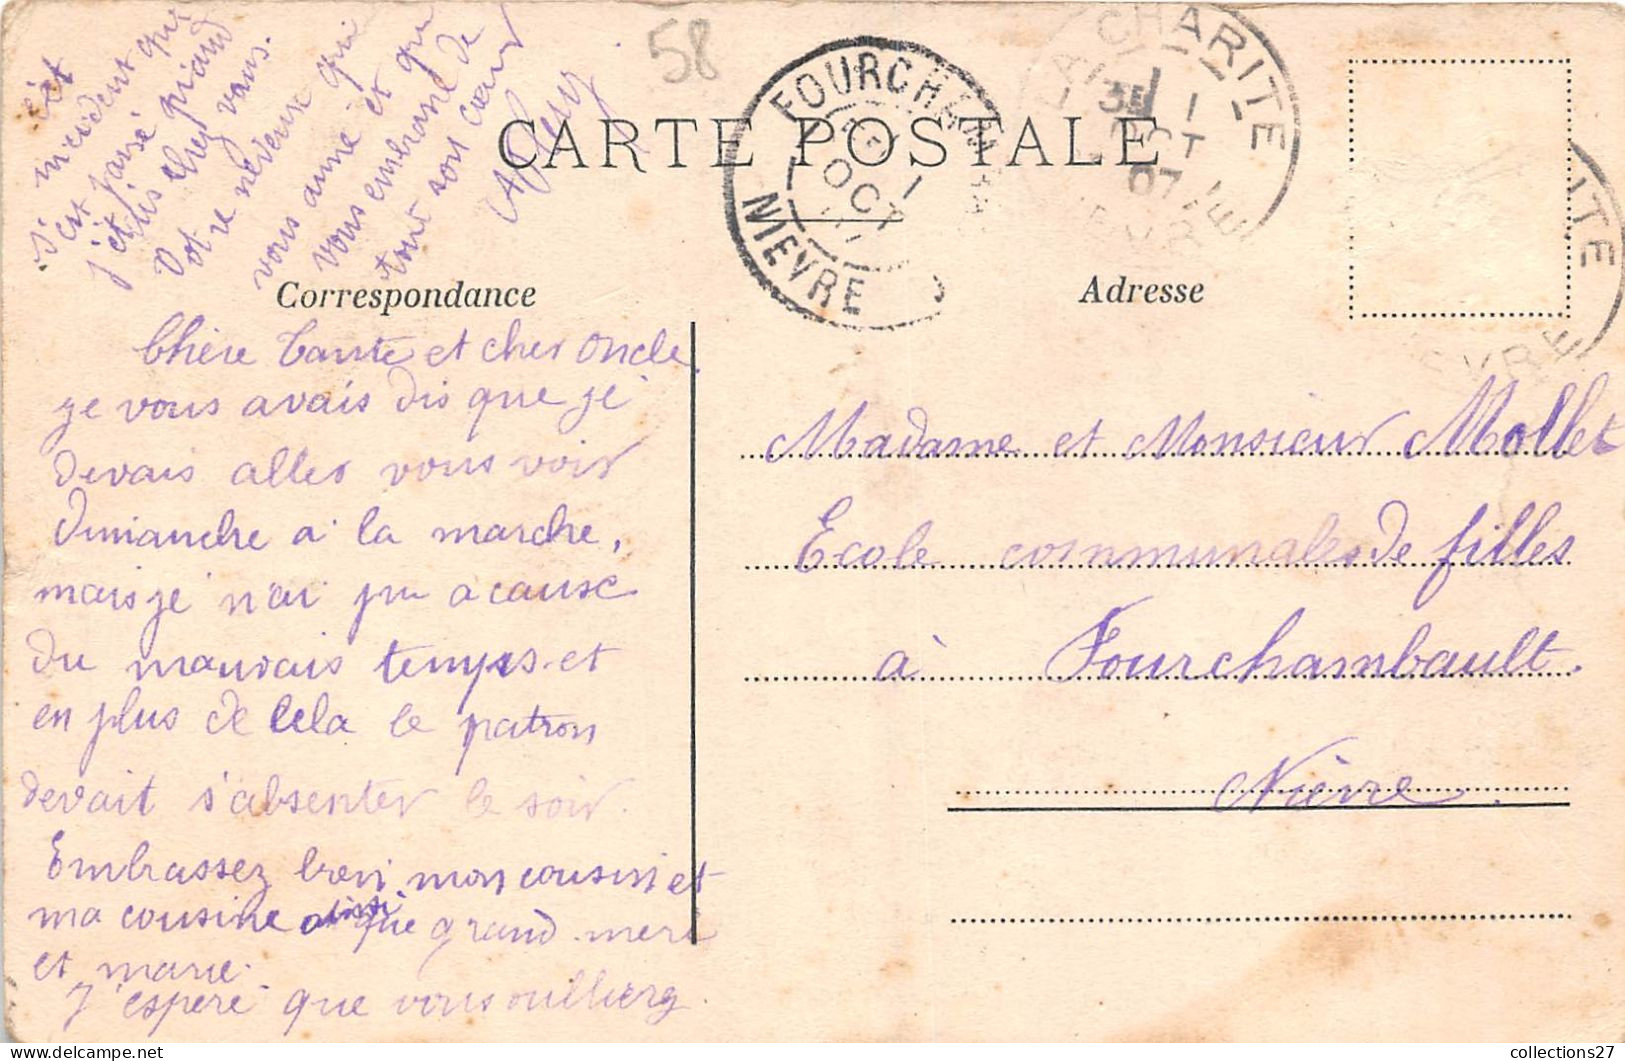 58
CARTE POSTALE
FOURCHAMBAULT
1
OCT
NIEVRE
LA CHARITE
3E 1
OCT
07
NIEVRE
ITE
EVRE
Correspondance
Adresse
Chère Tante et cher Oncle
je vous avais dis que je
devais aller vous voir
Dimanche a la marche,
mais je n'ai pu a cause
du mauvais temps et
en plus de cela le patron
devait s'absenter le soir.
Embrassez bien mon cousin et
ma cousine ainsi que grand mere
et marie.
J'espere que vous oublierez
cet
incident qui
s'est passé quand
j'etais chez vous.
Votre neveux qui
vous aime et qui
vous embrasse de
tout son cœur
Madame et Monsieur Mollet
Ecole communales de filles
à Fourchambault.
Nièvre.
collections27